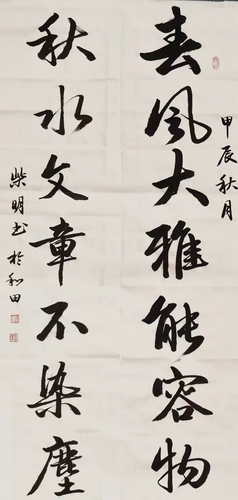 春风大雅能容物
甲辰秋月
秋水文章不染尘
柴明书于和田